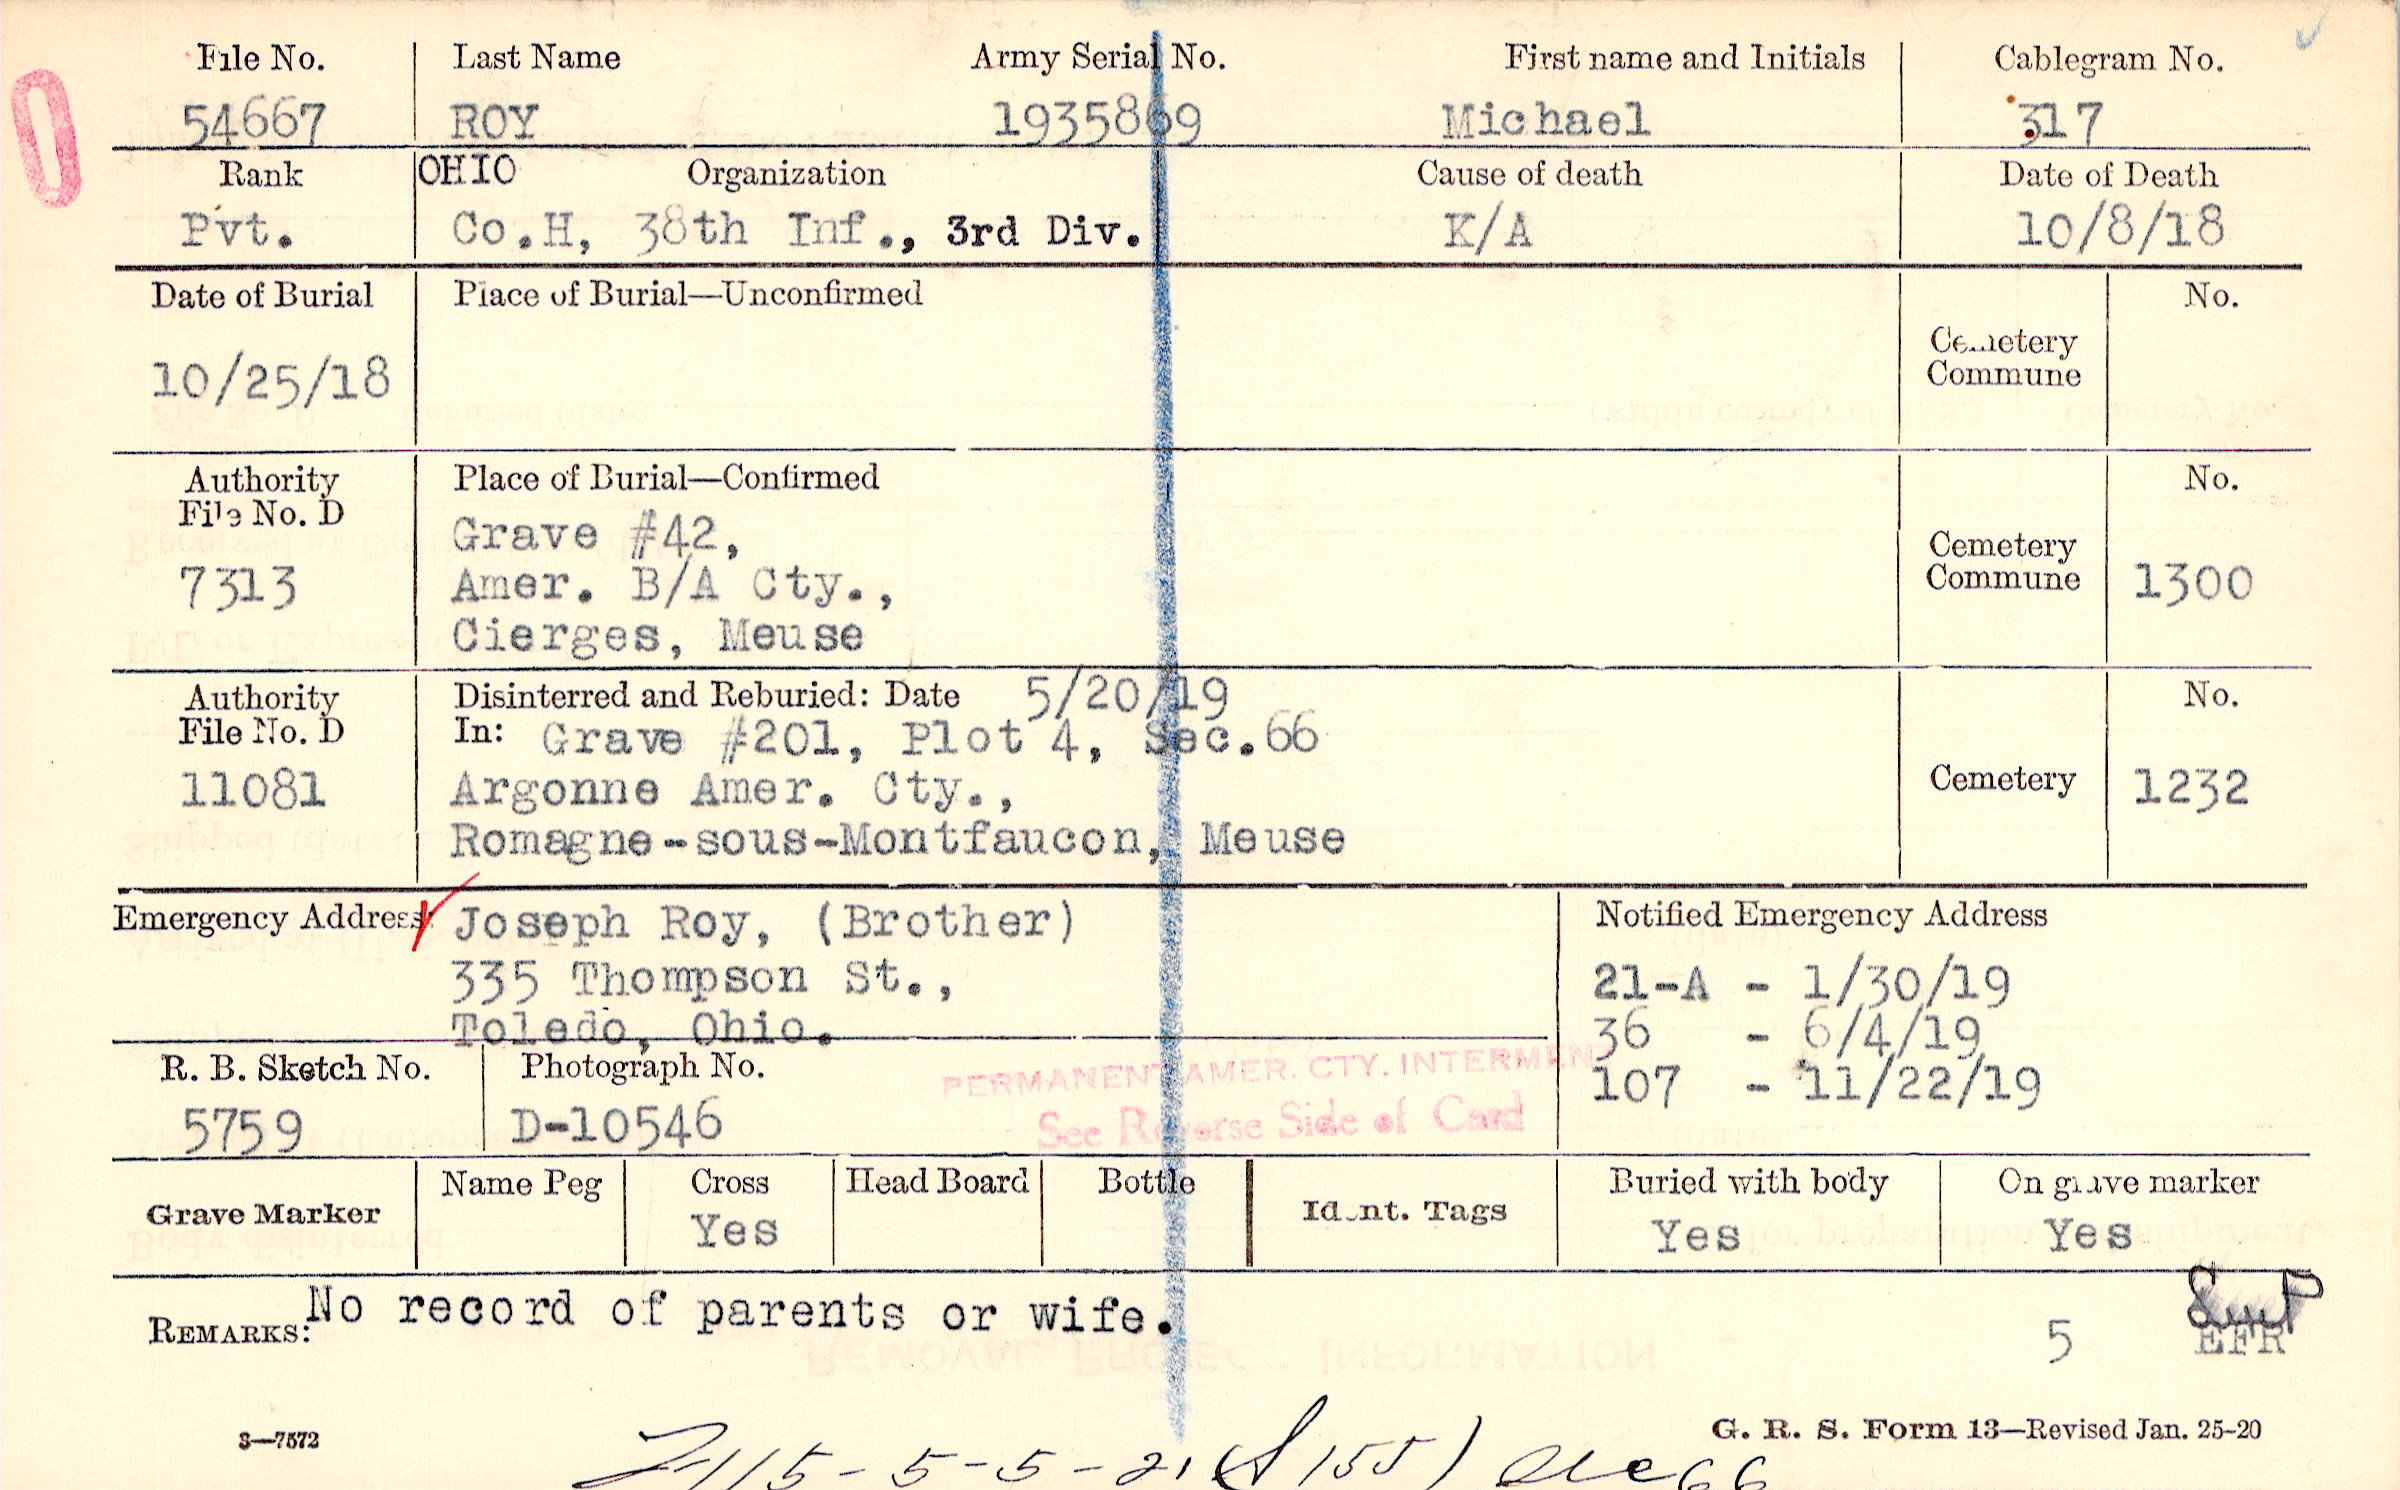 File No. Last Name Army Serial No. First name and Initials Cablegram No.
54667 ROY 1935869 Michael 317
Rank OHIO Organization Cause of death Date of Death
Pvt. Co.H, 38th Inf., 3rd Div. K/A 10/8/18
Date of Burial Place of Burial—Unconfirmed No.
Cemetery
Commune
10/25/18
Authority Place of Burial—Confirmed No.
File No. D
Grave #42,
Cemetery
7313 Amer. B/A Cty., Commune 1300
Cierges, Meuse
Authority Disinterred and Reburied: Date 5/20/19 No.
File No. D In: Grave #201, Plot 4, Sec.66
11081 Argonne Amer. Cty., Cemetery 1232
Romagne-sous-Montfaucon, Meuse
Emergency Address Joseph Roy, (Brother) Notified Emergency Address
335 Thompson St., 21-A - 1/30/19
Toledo, Ohio. 36 - 6/4/19
R. B. Sketch No. Photograph No. PERMANENT AMER. CTY. INTERMENT 107 - 11/22/19
5759 D-10546 See Reverse Side of Card
Name Peg Cross Head Board Bottle Buried with body On grave marker
Grave Marker Yes Ident. Tags Yes Yes
REMARKS: No record of parents or wife.
5 EFR
3—7572 G. R. S. Form 13—Revised Jan. 25-20
5-5-21 (S155)